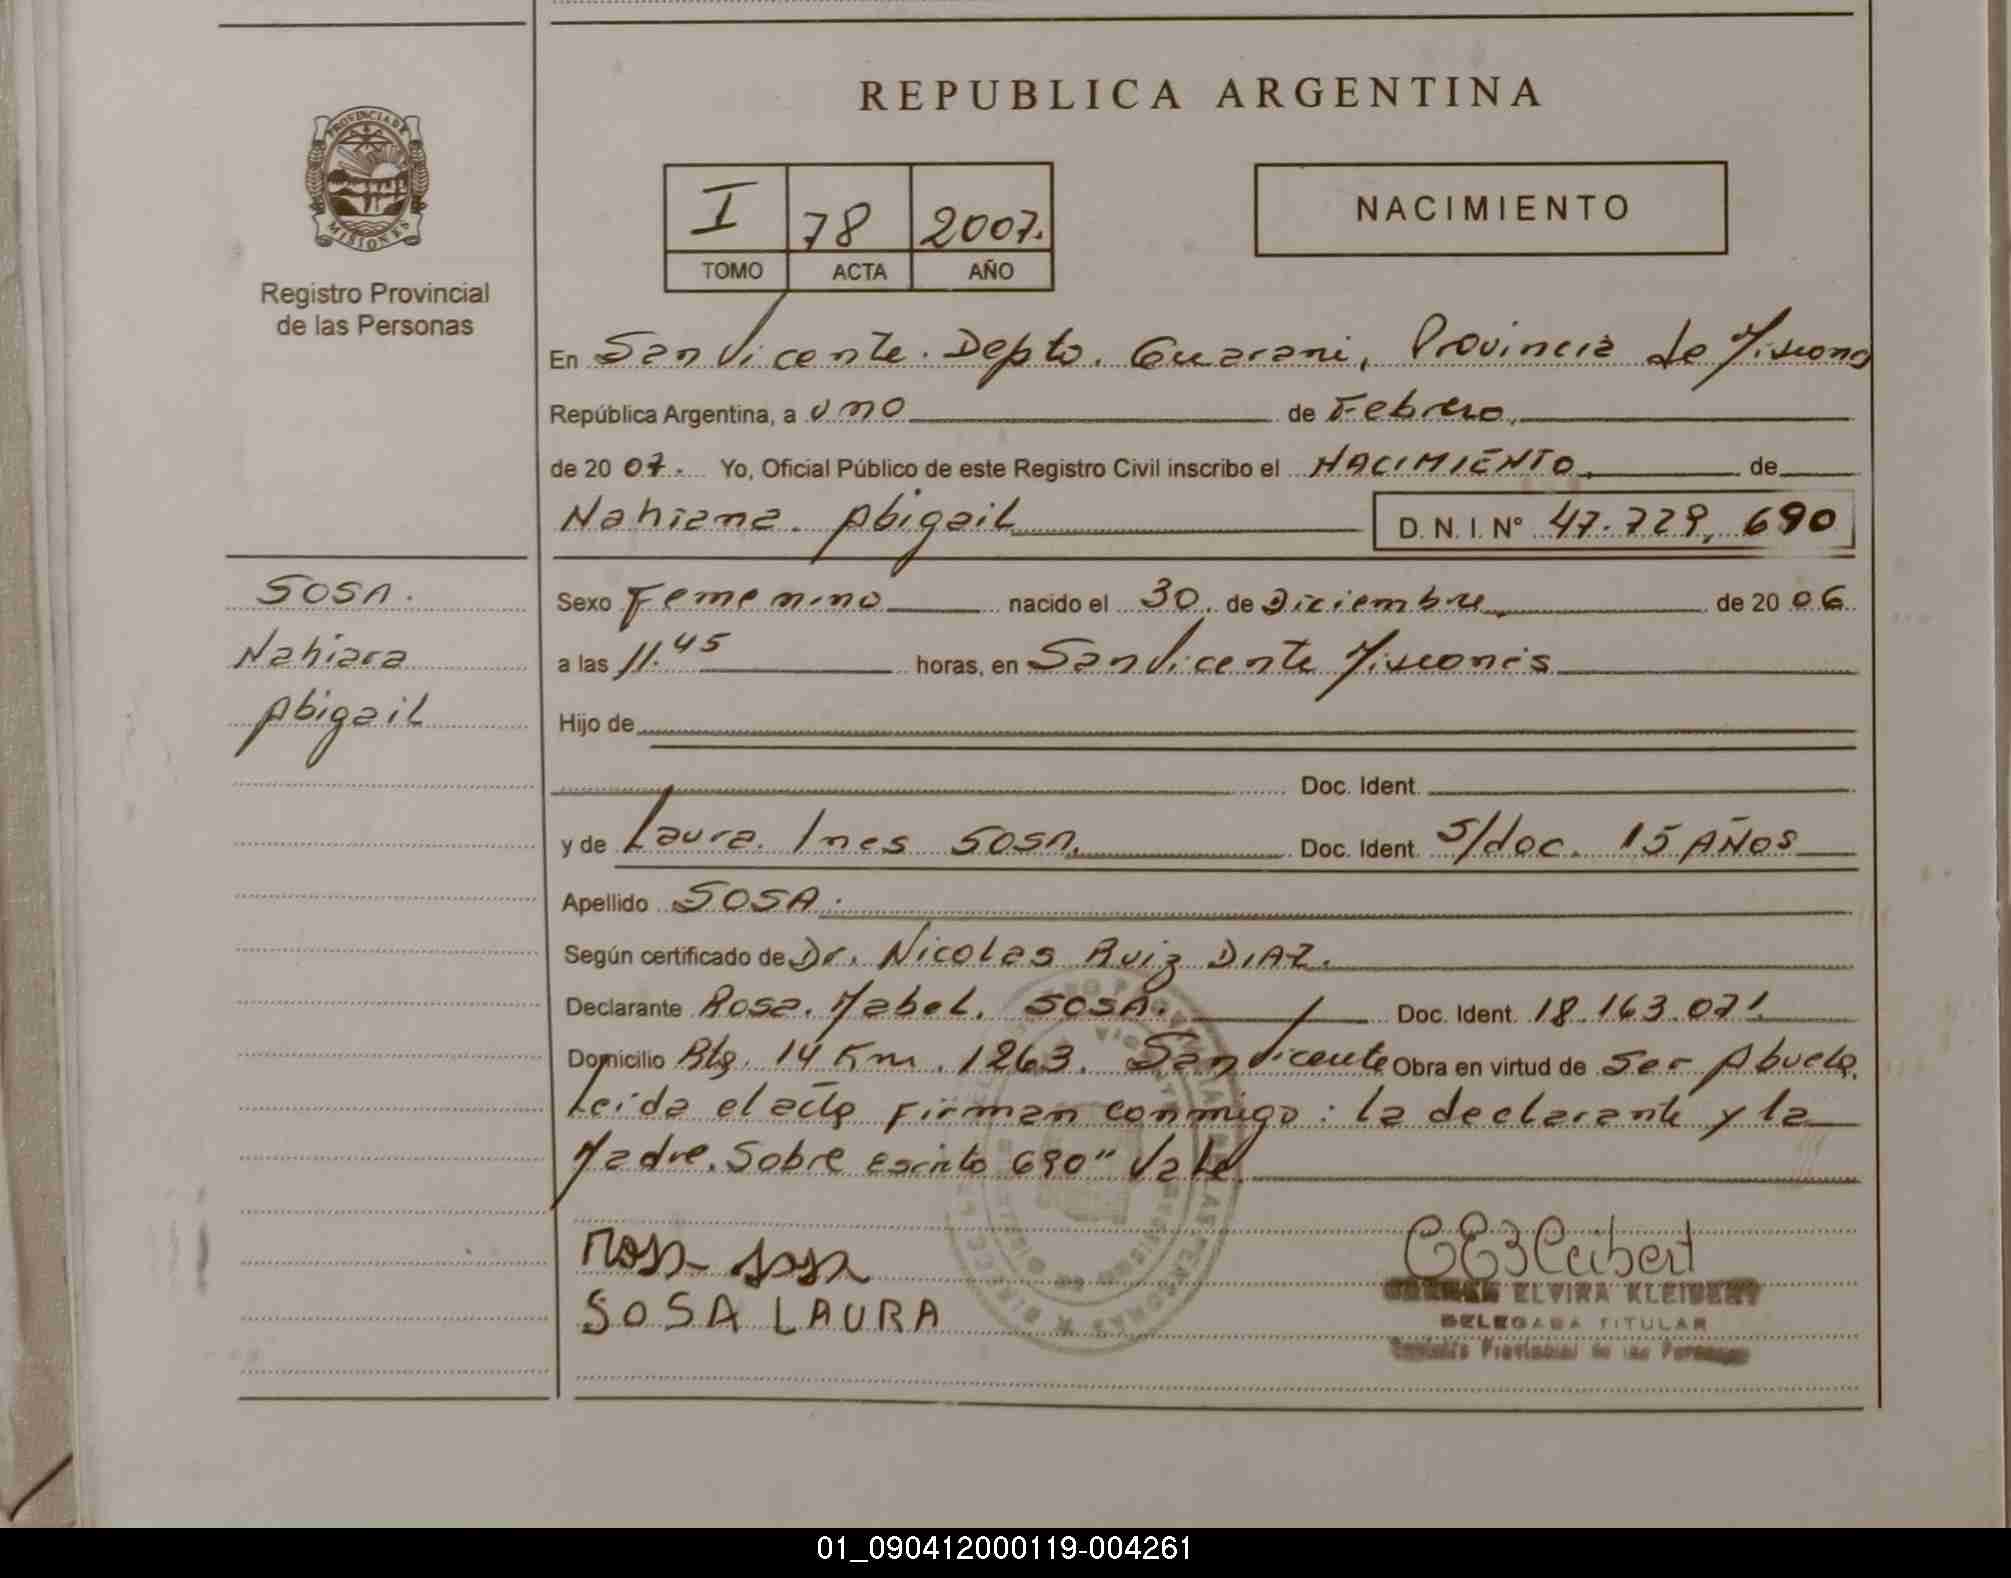 REPUBLICA ARGENTINA
PROVINCIA DE
MISIONES
Registro Provincial
de las Personas
I 78 2007.
TOMO ACTA AÑO
NACIMIENTO
En San Vicente. Depto. Guarani, Provincia de Misiones
República Argentina, a uno de Febrero,
de 20 07. Yo, Oficial Público de este Registro Civil inscribo el NACIMIENTO de
Nahiara Abigail D. N. I. N° 47.729.690
SOSA.
Nahiara
Abigail
Sexo Femenino nacido el 30. de Diciembre de 20 06
a las 11.45 horas, en San Vicente Misiones
Hijo de
Doc. Ident.
y de Laura Ines SOSA. Doc. Ident. S/doc. 15 AÑOS
Apellido SOSA.
Según certificado de Dr. Nicolas Ruiz DIAZ.
Declarante Rosa Mabel. SOSA. Doc. Ident. 18.163.071
Domicilio Rta. 14 Km. 1263. San Vicente Obra en virtud de Ser Abuela.
Leida el acta firman conmigo: la declarante y la
Madre. Sobre escrito 690" Vale.
Rosa Sosa
SOSA LAURA
ELVIRA KLEIBERT
DELEGADA TITULAR
Registro Provincial de las Personas
01_090412000119-004261